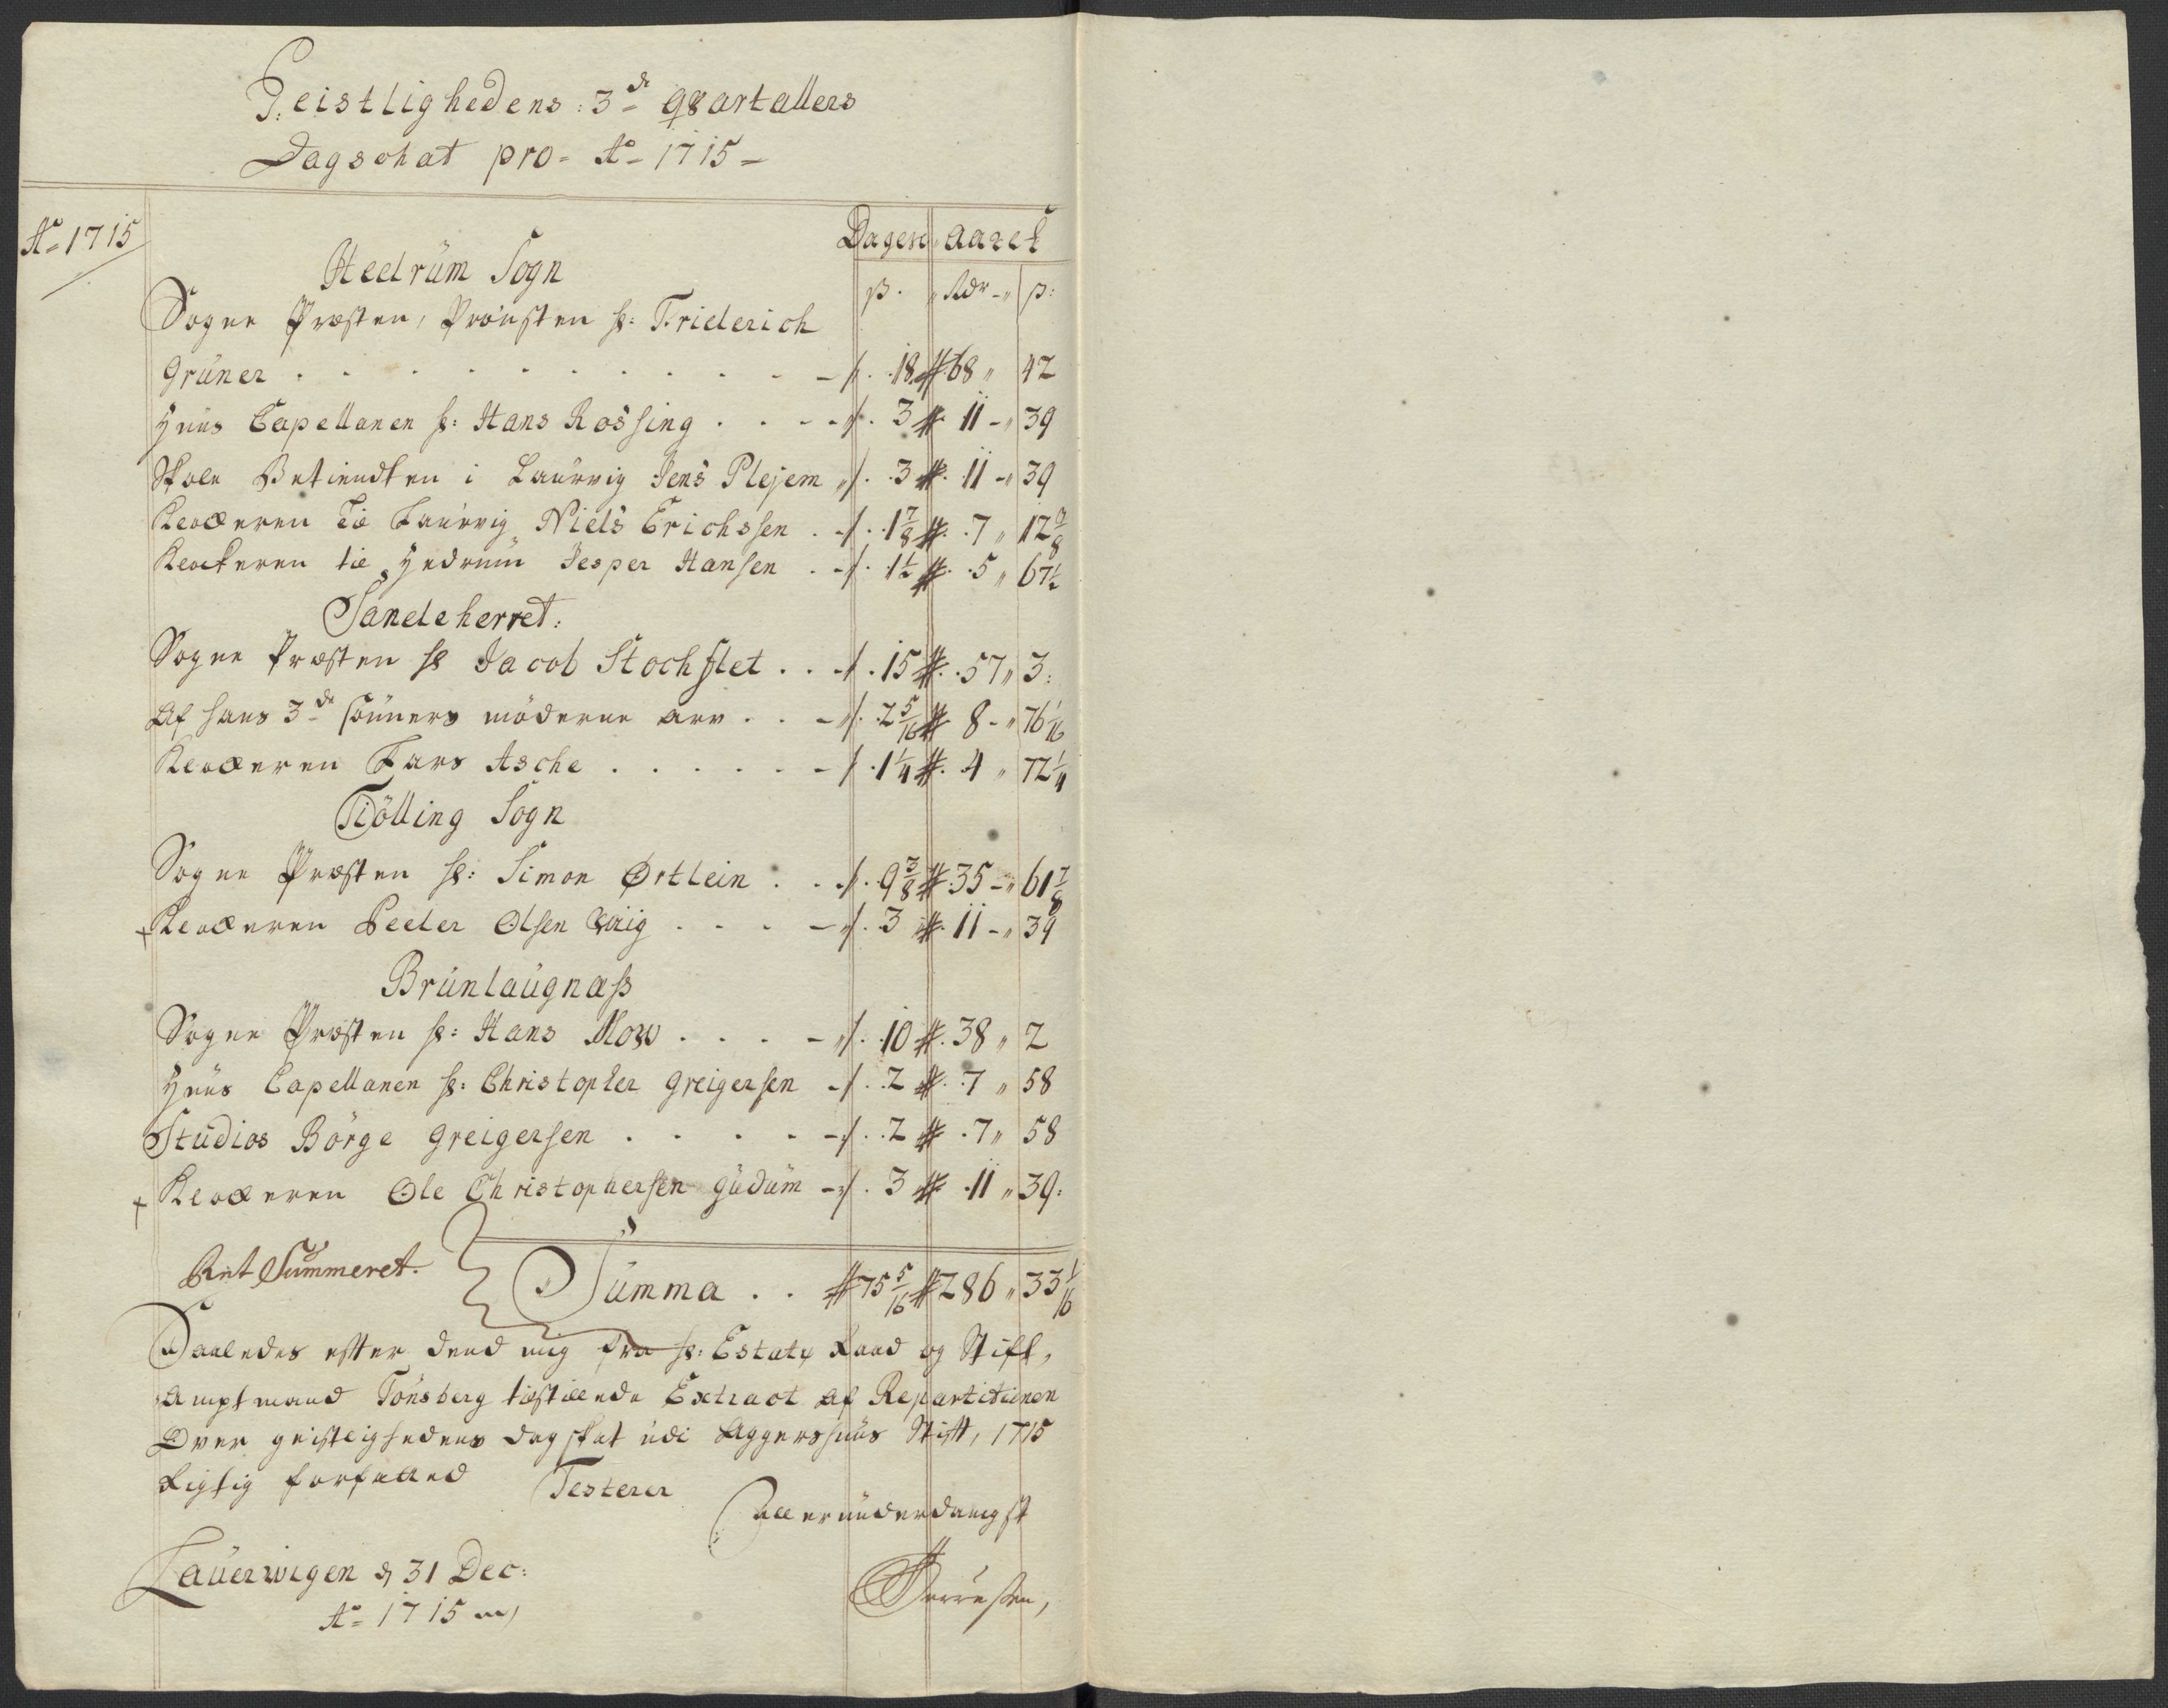 Geistlighedens: 3de Qvartallers
Dagschat pro= Ao= 1715=
Ao= 1715
Dagen aaret
Hedrŭm Sogn
ß. Rdr ß:
Sogne Præsten, Prousten hr: Friderich
Grŭner . . . 18 68 42
Hans Capellanen hr: Hans Rossing . . . 3 11 39
Skole Betiendten i Laŭrvig Jens Plejem 3 11 39
Klocheren til Laŭrvig Niels Erichssen . 1 7/8 7 12 7/8
Klockeren til Hedrum Jesper Hansen . 1 1/2 5 67 1/2
Sandeherret:
Sogne Præsten hr Jacob Stochflet . . 15 57 3:
Af hans 3de sönners möderne arv . . 2 5/16 8 76 1/16
Klocheren Lars Asche . . . 1 1/4 4 72 1/4
Tiölling Sogn
Sogne Præsten hr: Simon Ørtlein . . 9 3/8 35 61 7/8
+ Klocheren Peeter Olsen . . . 3 11 39
Brŭnlaŭgnæß
Sogne Præsten hr: Hans Mow . . . 10 38 2
Hans Capellanen hr: Christopher Greigersen 2 7 58
Stŭdios Börge Greigersen . . . 2 7 58
+ Klocheren Ole Christophersen Gŭdŭm 3 11 39:
Ret Sŭmmeret.
Sŭmma . . 75 5/16 286 33 1/16
Saaledes efter dend mig fra hr: Estatz Raad og Stift,
amptmand Tönsberg tilstillede Extract af Repartitionen
Over geistlighedens dagskat udi Aggershŭŭs Stift, 1715
Rigtig forfatted Testerer
Allerŭnderdanigst
Laŭerwigen d 31 Dec:
Ao= 1715